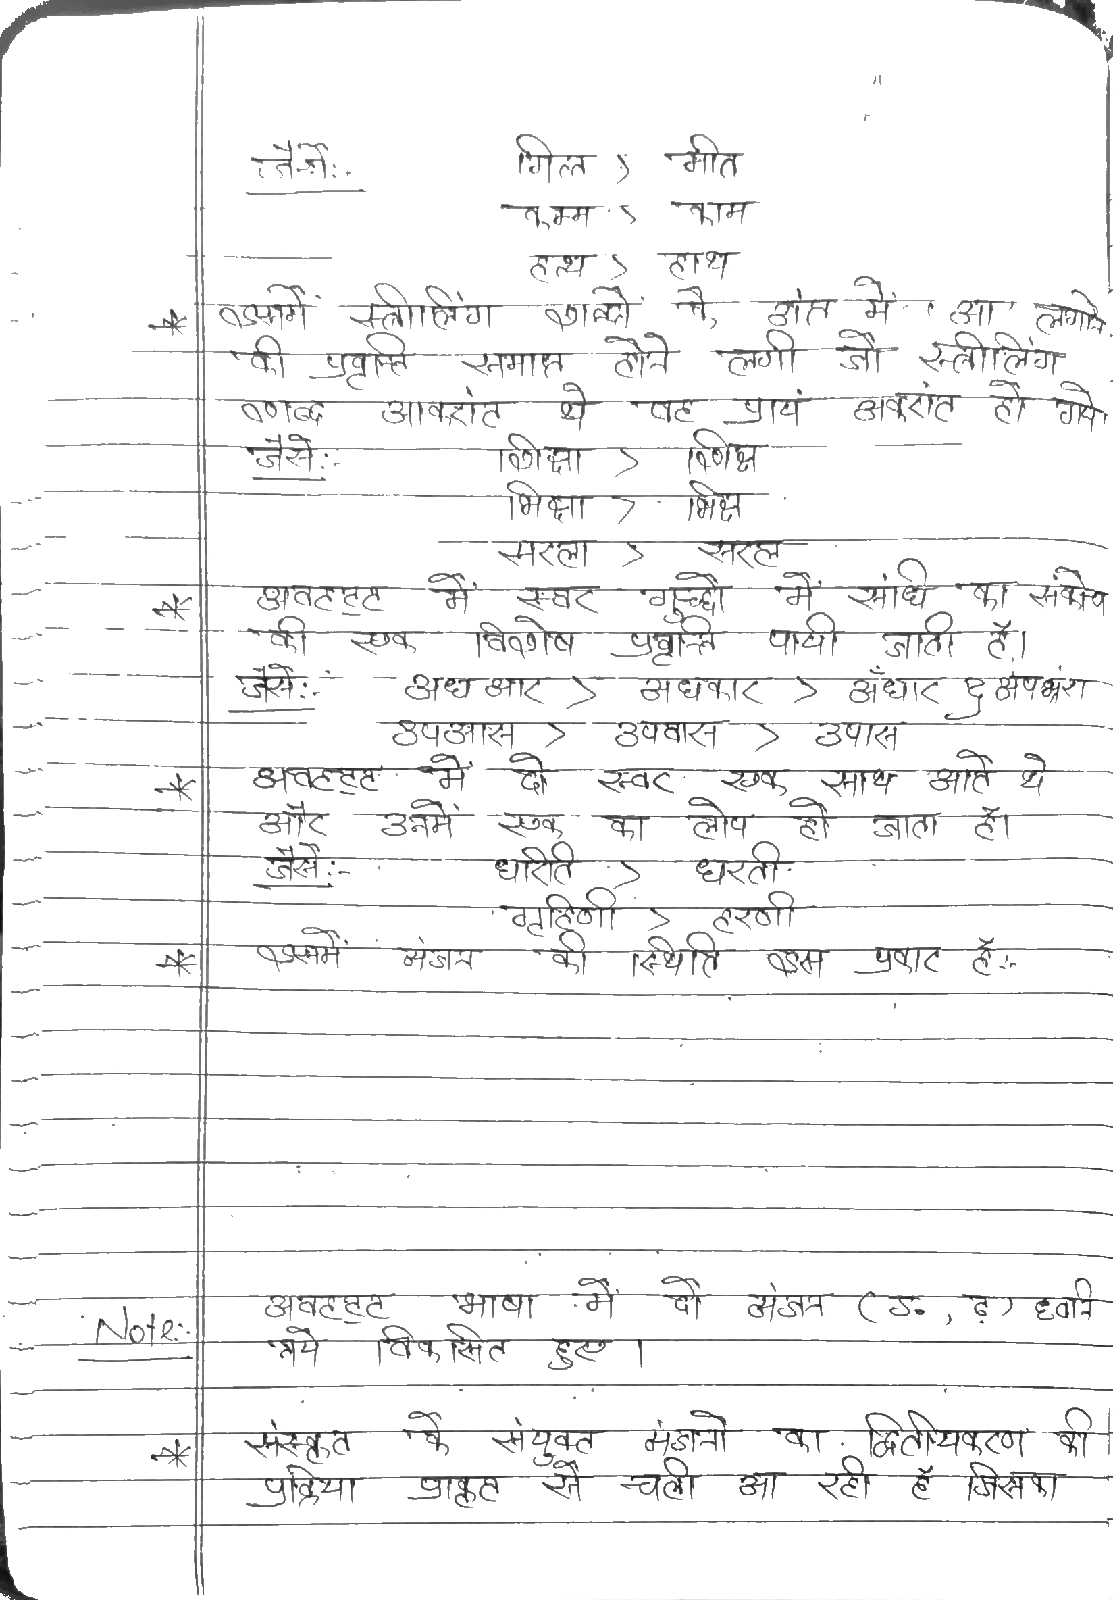 जैसे:-  मित्त > मीत
कम्म > काम
हत्थ > हाथ
* इसमें स्त्रीलिंग शब्दों के, अंत में 'आ' लगाने
की प्रवृत्ति समाप्त होने लगी जो स्त्रीलिंग
शब्द आकारांत थे वह प्रायं अकारांत हो गये
जैसे:-  शिक्षा > शिक्ष
भिक्षा > भिक्ष
सरला > सरल
* अवहट्ट में स्वर गुच्छों में संधि का संकोच
की एक विशेष प्रवृत्ति पायी जाती है।
जैसे:-  अधआर > अधकार > अँधार अपभ्रंश
उपआस > उपवास > उपास
* अवहट्ट में दो स्वर एक साथ आते थे
और उनमें एक का लोप हो जाता है।
जैसे:-  धरिति > धरती
गृहिणी > हरणी
* इसमें व्यंजन की स्थिति इस प्रकार है:-
Note:- अवहट्ट भाषा में दो व्यंजन (ड़, ढ़) ध्वनि
नये विकसित हुए।
* संस्कृत के संयुक्त व्यंजनो का द्वितीयकरण की
प्रक्रिया प्राकृत से चली आ रही है जिसका